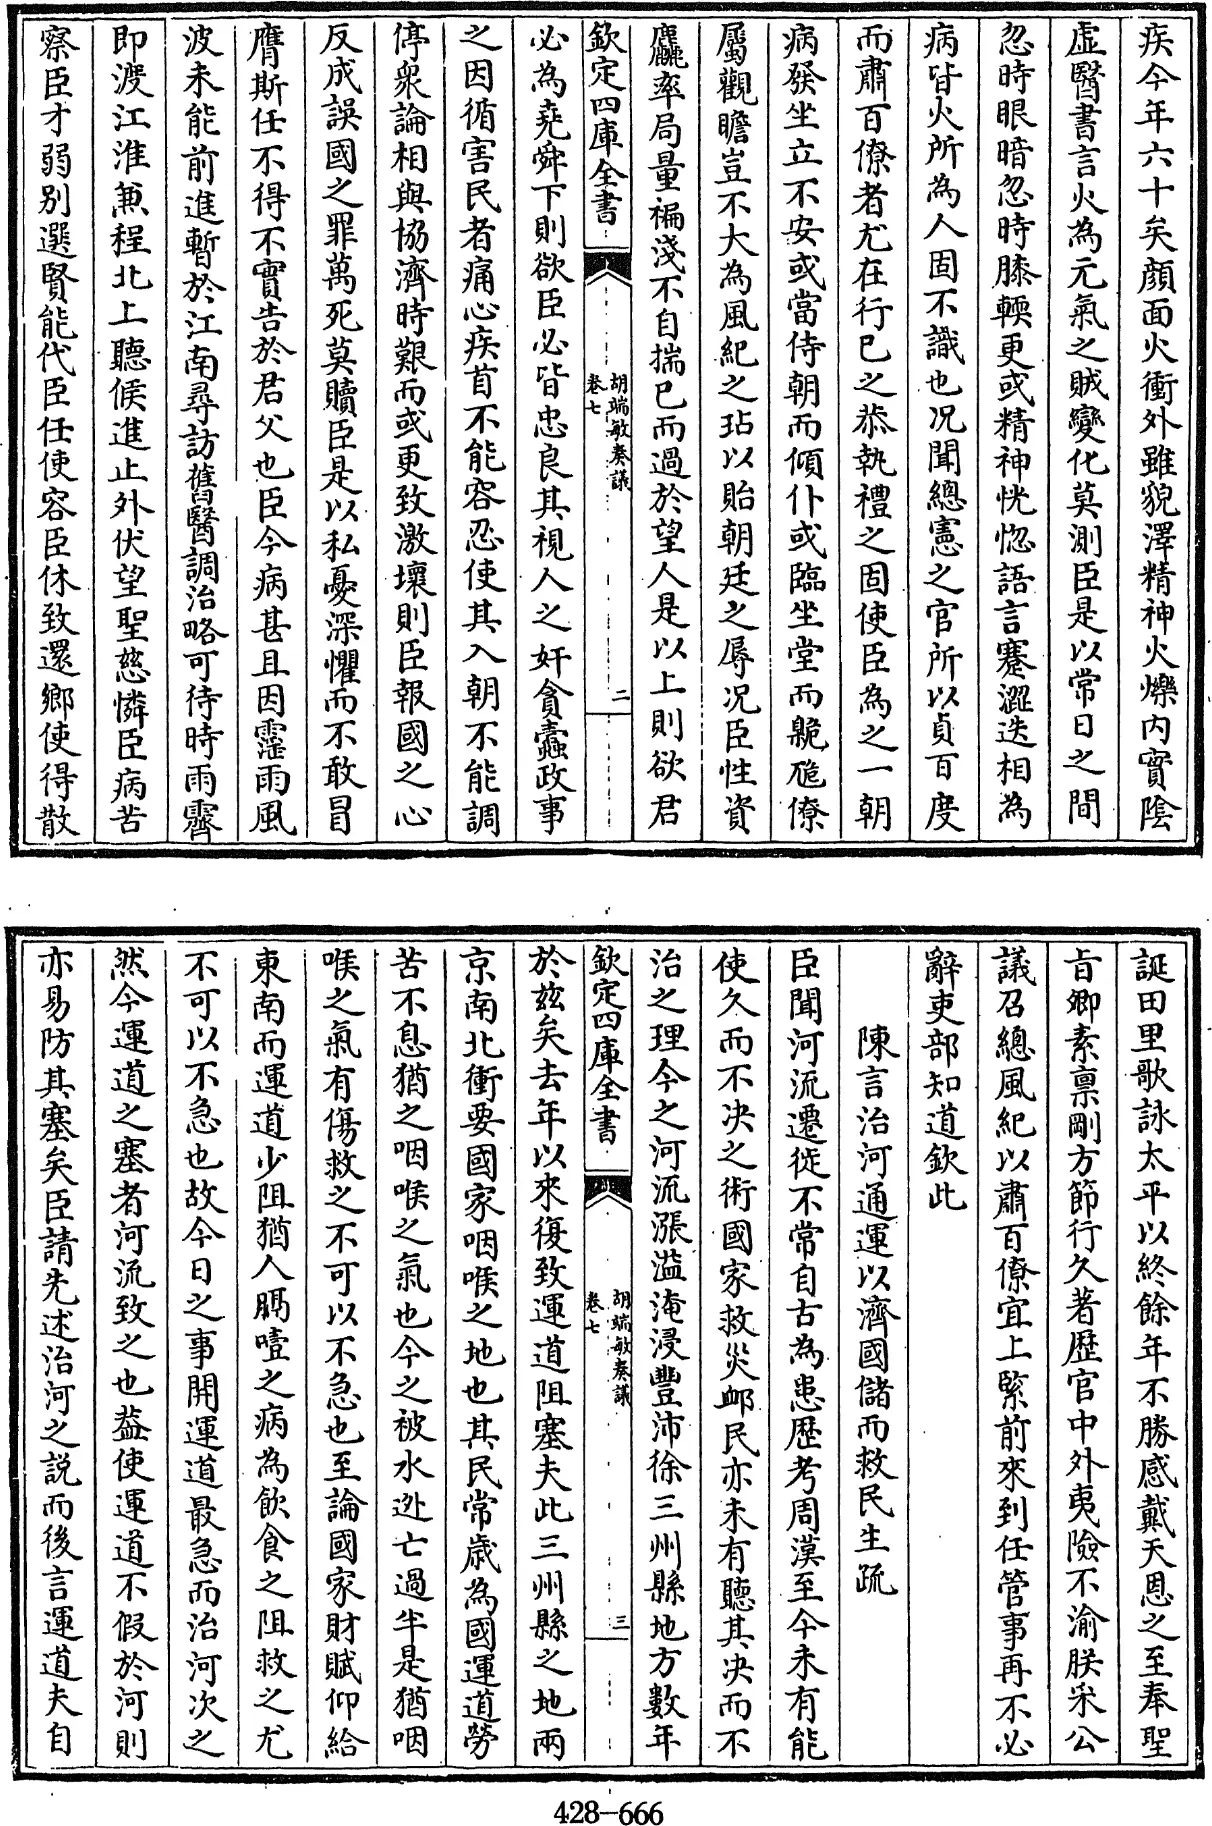 疾今年六十矣顔面火衝外雖貌澤精神火爍内實陰
虚醫書言火為元氣之賊變化莫測臣是以常日之間
忽時眼暗忽時膝輭更或精神恍惚語言蹇澀迭相為
病皆火所為人固不識也况聞總憲之官所以貞百度
而肅百僚者尤在行已之恭執禮之固使臣為之一朝
病發坐立不安或當侍朝而傾仆或臨坐堂而鼿卼僚
屬觀瞻豈不大為風紀之玷以貽朝廷之辱况臣性資
麤率局量褊淺不自揣已而過於望人是以上則欲君
欽定四庫全書
胡端敏奏議
卷七
二
必為堯舜下則欲臣必皆忠良其視人之奸貪蠹政事
之因循害民者痛心疾首不能容忍使其入朝不能調
停衆論相與協濟時艱而或更致激壞則臣報國之心
反成誤國之罪萬死莫贖臣是以私憂深懼而不敢冒
膺斯任不得不實告於君父也臣今病甚且因霪雨風
波未能前進暫於江南尋訪舊醫調治略可待時雨霽
即渡江淮兼程北上聽候進止外伏望聖慈憐臣病苦
察臣才弱别選賢能代臣任使容臣休致還鄉使得散
誕田里歌詠太平以終餘年不勝感戴天恩之至奉聖
旨卿素禀剛方節行久著歴官中外夷險不渝朕采公
議召總風紀以肅百僚宜上緊前來到任管事再不必
辭吏部知道欽此
陳言治河通運以濟國儲而救民生疏
臣聞河流遷徙不常自古為患歴考周漢至今未有能
使久而不决之術國家救災䘏民亦未有聽其决而不
治之理今之河流漲溢淹浸豐沛徐三州縣地方數年
欽定四庫全書
胡端敏奏議
卷七
三
於兹矣去年以來復致運道阻塞夫此三州縣之地兩
京南北衝要國家咽喉之地也其民常歳為國運道勞
苦不息猶之咽喉之氣也今之被水迯亡過半是猶咽
喉之氣有傷救之不可以不急也至論國家財賦仰給
東南而運道少阻猶人膈噎之病為飲食之阻救之尤
不可以不急也故今日之事開運道最急而治河次之
然今運道之塞者河流致之也葢使運道不假於河則
亦易防其塞矣臣請先述治河之説而後言運道夫自
428-666